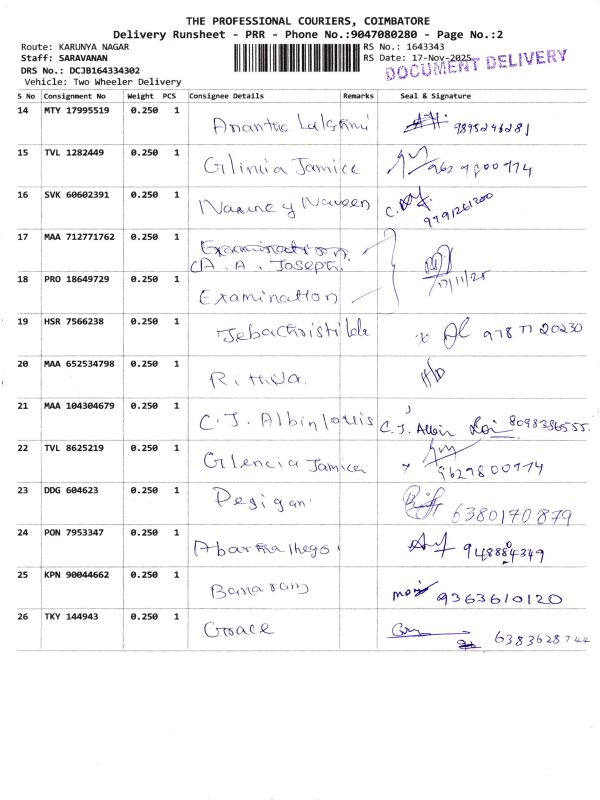 THE PROFESSIONAL COURIERS, COIMBATORE
Delivery Runsheet - PRR - Phone No.:9047080280 - Page No.:2
Route: KARUNYA NAGAR RS No.: 1643343
Staff: SARAVANAN RS Date: 17-Nov-2025
DOCUMENT DELIVERY
DRS No.: DCJB164334302
Vehicle: Two Wheeler Delivery
S No Consignment No Weight PCS Consignee Details Remarks Seal & Signature
14 MTY 17995519 0.250 1 Anantha Lakshmi 9895246281
15 TVL 1282449 0.250 1 Glincia Jamica 9629800774
16 SVK 60602391 0.250 1 Naveen 9791261200
17 MAA 712771762 0.250 1 Examination
A. A. Joseph.
17/11/25
18 PRO 18649729 0.250 1 Examination
19 HSR 7566238 0.250 1 Jebachristilda 9787720230
20 MAA 652534798 0.250 1
21 MAA 104304679 0.250 1 C. J. Albin louis C. J. Albin 8098386555.
22 TVL 8625219 0.250 1 Glencia Jamica 9629800774
23 DDG 604623 0.250 1 6380170879
24 PON 7953347 0.250 1
25 KPN 90044662 0.250 1 9363610120
26 TKY 144943 0.250 1 Grace 6383628744